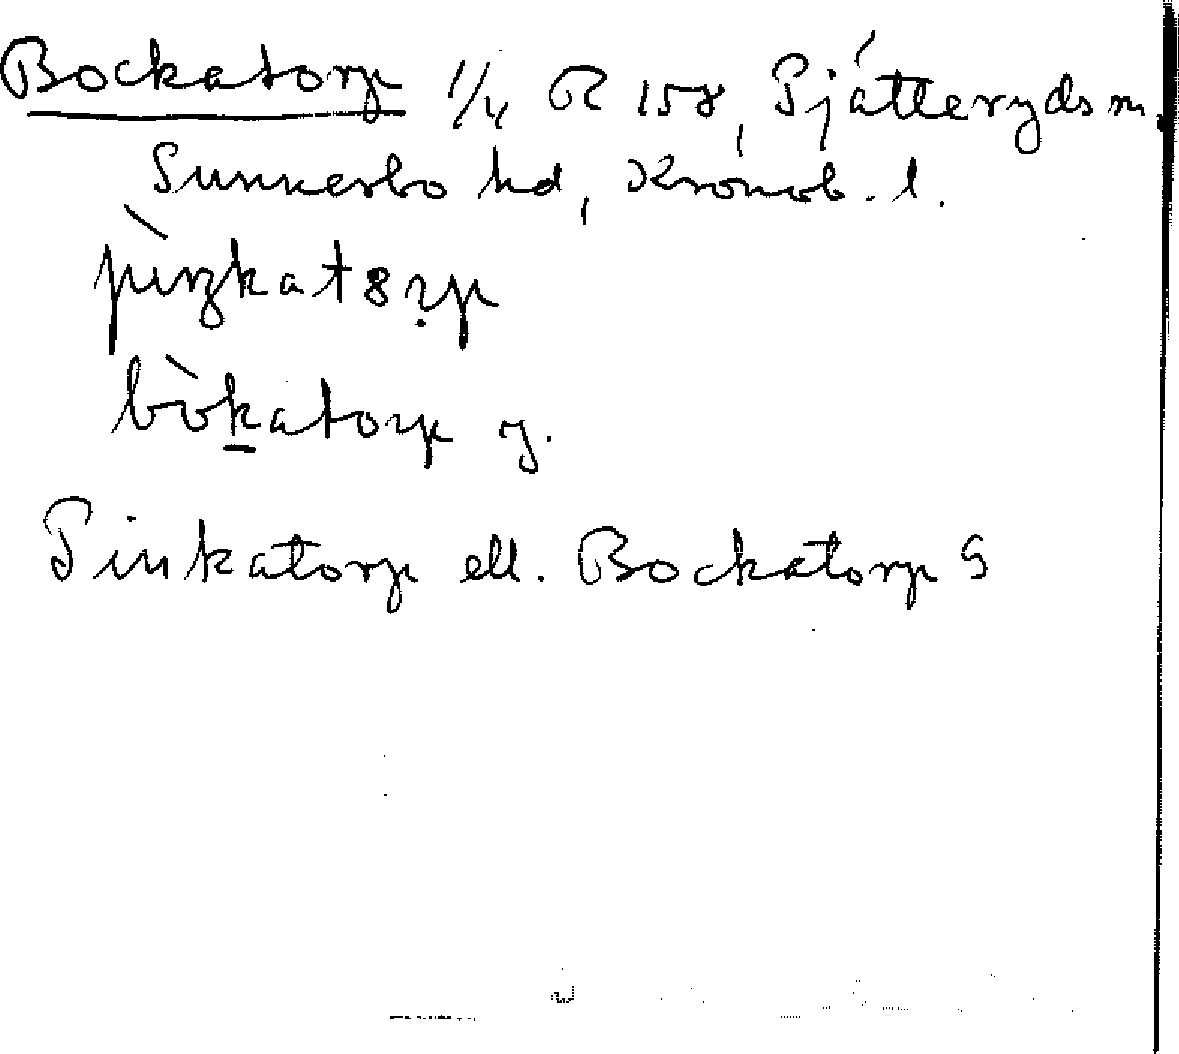 Bockatorp 1/4 R 158, Pjätteryds sn.
Sunnerbo hd, Kronob. l.
bòkatorp y.
Pinkatorp ell. Bockatorp G